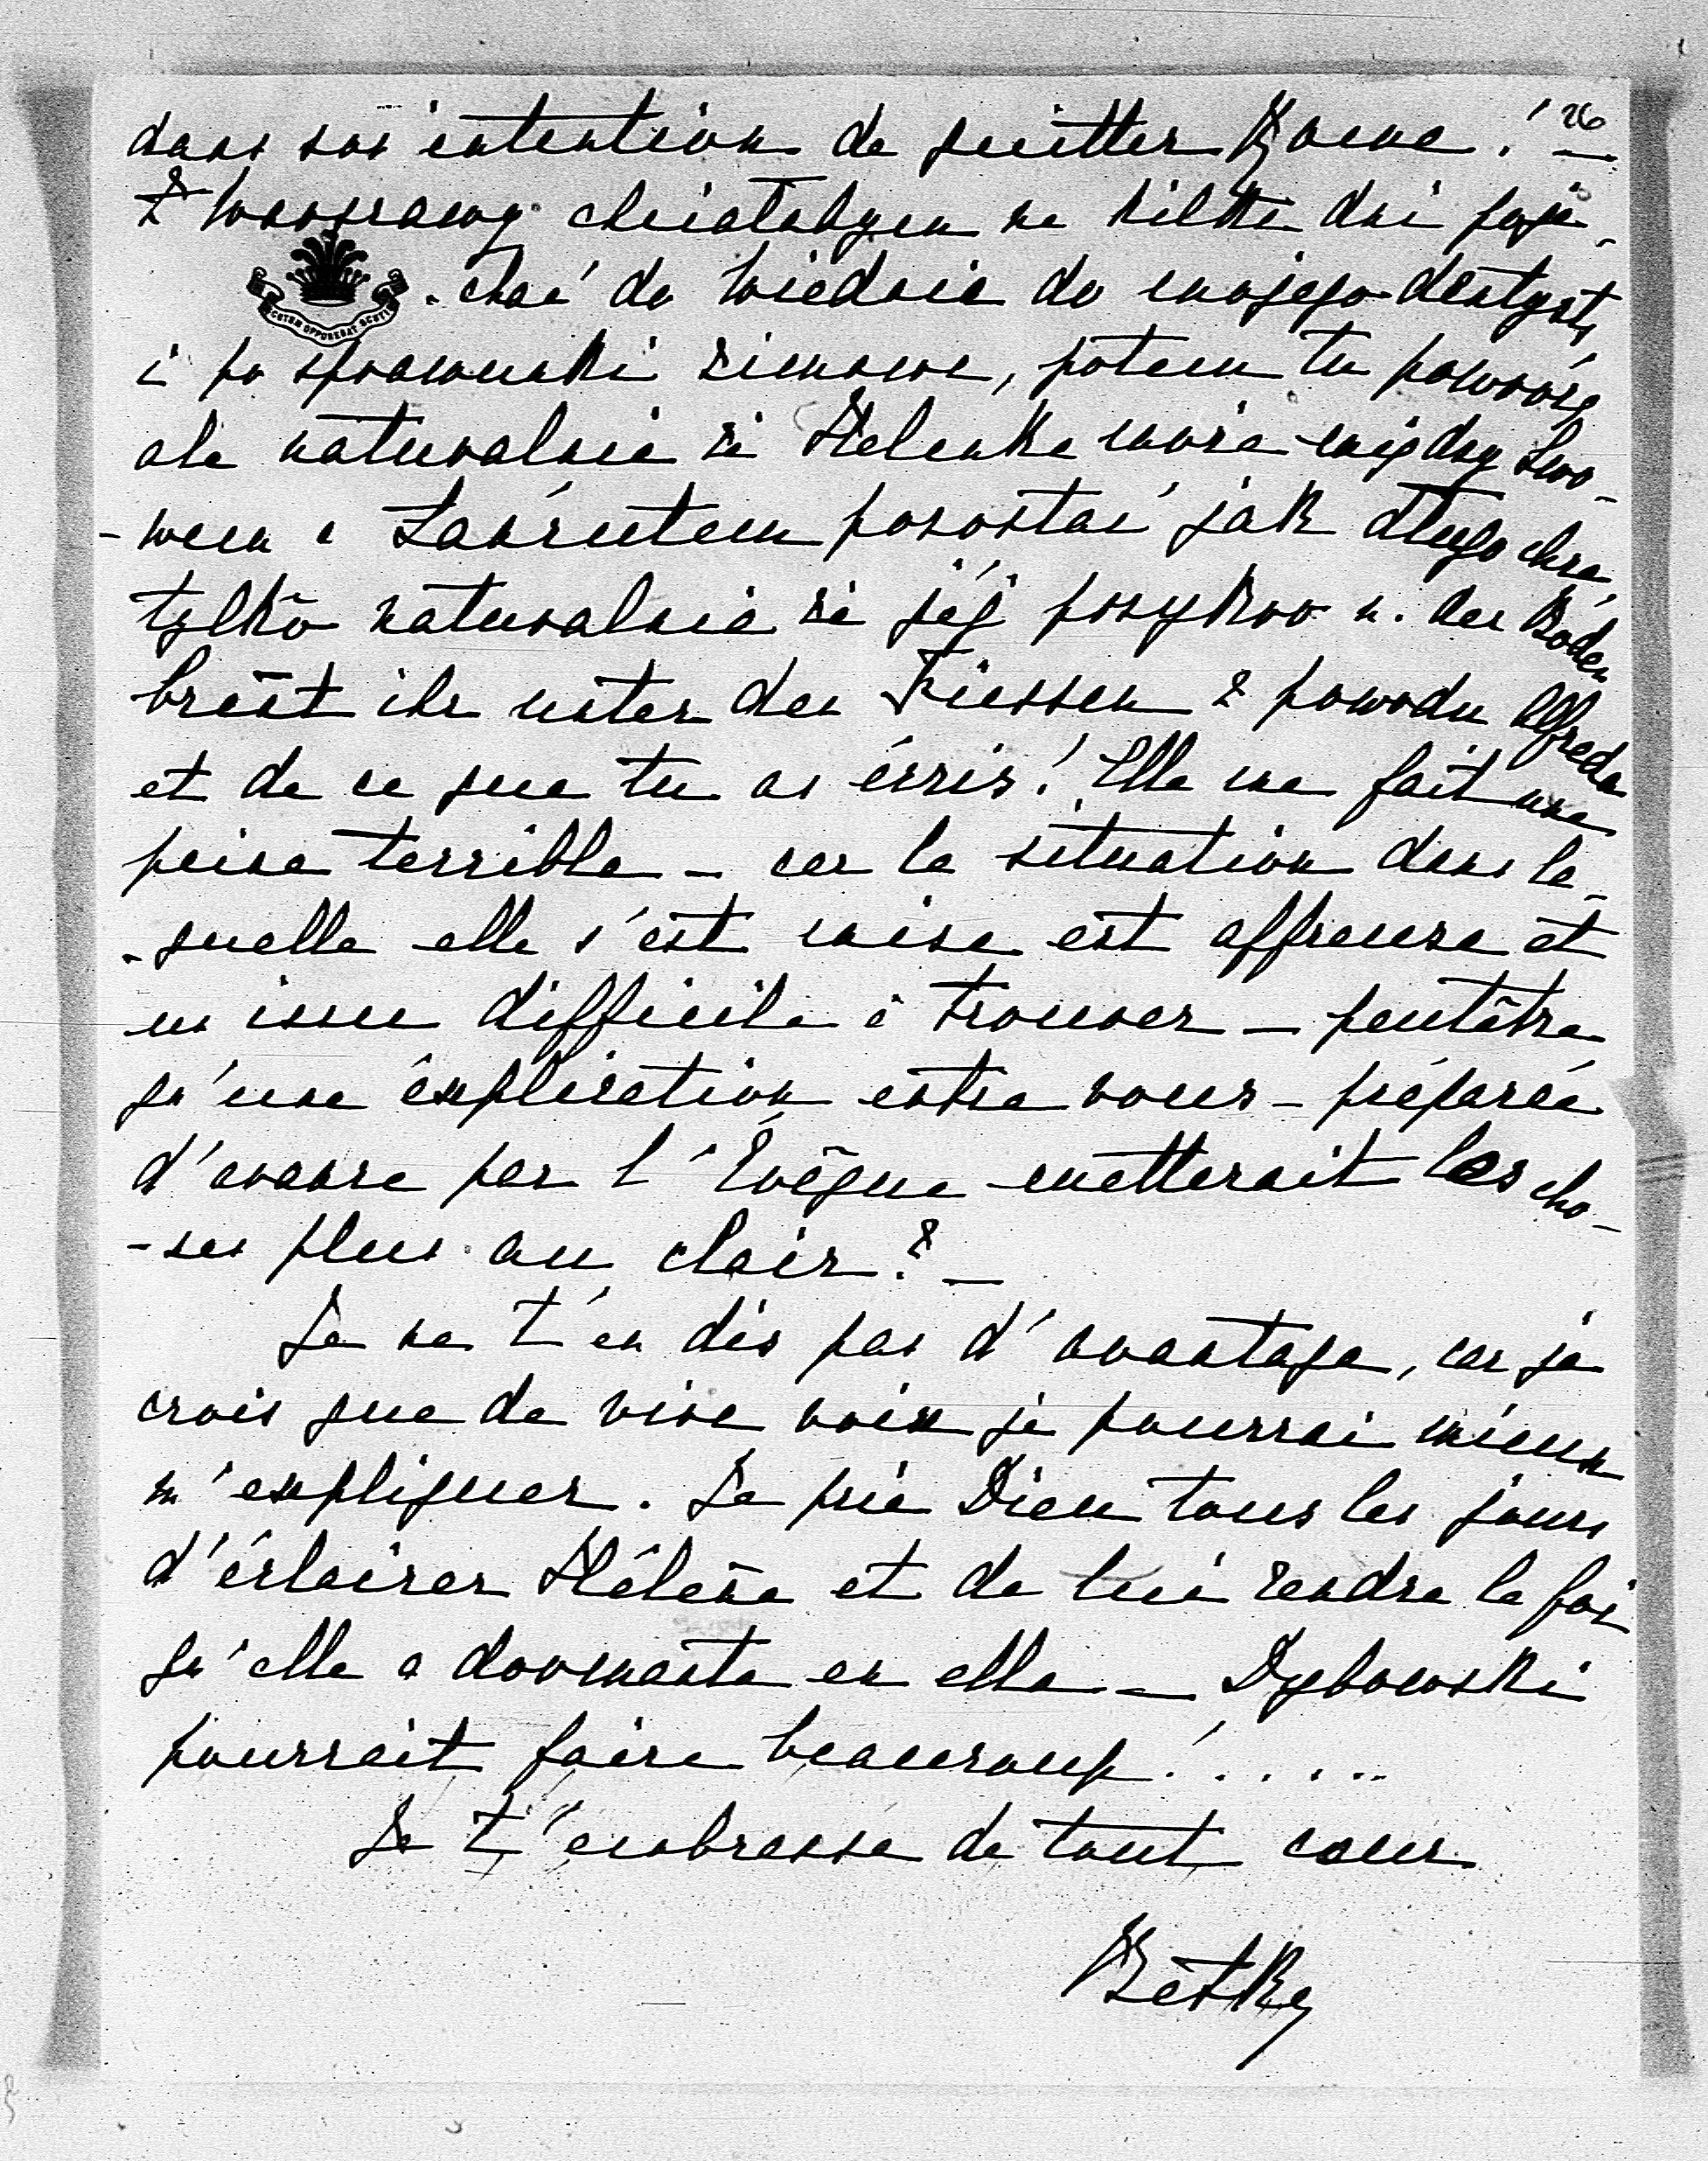 26
dans son intention de quitter Rome! —
Z Warszawy chciałabym na kilka dni poje-
-chać do Wiednia do mojego dentysty
i po sprawunki zimowe, potem tu powrócę
ale naturalnie że Helenka może między Lwo-
-wem a Łańcutem pozostać jak długo chce,
tylko naturalnie że jéj przykro u. der Boden
brent ihr unter den Fiessen z powodu Alfreda
et de ce que tu as écris! Elle me fait une
peine terrible — car la situation dans la-
-quelle elle s'est mise est affreuse et
un issu difficile à trouver — peutêtre
qu'une éxplication entre vous — préparée
d'avance par l'Evêque metterait les cho-
-ses plus au clair? —
Je ne t'en dis pas d'avantage, car je
crois que de vive voix je pourrai mieux
m'expliquer. Je prie Dieu tous les jours
d'éclairer Hélène et de lui rendre la foi
qu'elle a dormante en elle — Dybowski
pourrait faire beaucoup! .....
Je t'embrasse de tout coeur
Betka